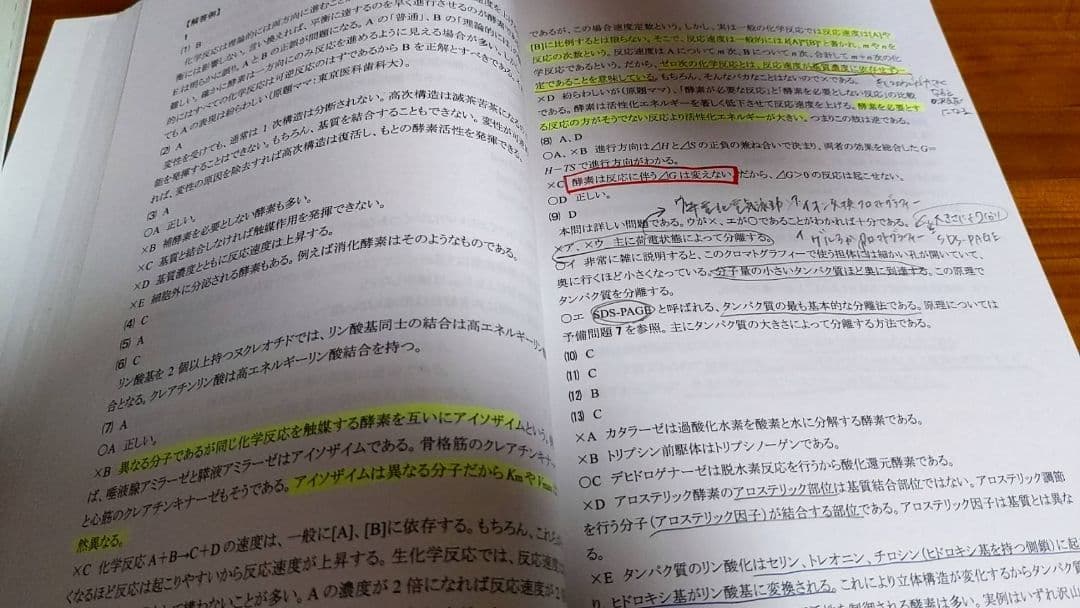 【解答例】
1
(1) B
化学反応は理論的には両方向に進むことが
衡には影響しない。言い換えれば、平衡に達するのを早く進行させるのが酵素
Eは明らかに誤り。AとBの正誤が問題になる。Aの「普通」、Bの「理論的には
難しい。確かに酵素は一方向にのみ反応を進めるように見える場合が多い。しか
的にはすべての化学反応は可逆反応のはずであるからBを正解とすべきであ
でもAの表現は紛らわしい(原題ママ:東京医科歯科大)。
(2) A
変性を受けても、通常は1次構造は分断されない。高次構造は滅茶苦茶にな
能を発揮することはできない。もちろん、基質を結合することもできない。変性が可逆
れば、変性の原因を除去すれば高次構造は復活し、もとの酵素活性を発揮できる。
(3) A
○A 正しい。
×B 補酵素を必要としない酵素も多い。
×C 基質と結合しなければ触媒作用を発揮できない。
×D 基質濃度とともに反応速度は上昇する。
×E 細胞外に分泌される酵素もある。例えば消化酵素はそのようなものである。
(4) C
(5) A
(6) C
リン酸基を2個以上持つヌクレオチドでは、リン酸基同士の結合は高エネルギーリン
合となる。クレアチンリン酸は高エネルギーリン酸結合を持つ。
(7) A
○A 正しい。
×B 異なる分子であるが同じ化学反応を触媒する酵素を互いにアイソザイムという。
ば、唾液腺アミラーゼと膵液アミラーゼはアイソザイムである。骨格筋のクレアチンキナー
と心筋のクレアチンキナーゼもそうである。アイソザイムは異なる分子だからKmや
然異なる。
×C 化学反応A+B→C+Dの速度は、一般に[A]、[B]に依存する。もちろん、これ
くなるほど反応は起こりやすいから反応速度が上昇する。生化学反応では、反応速度
て構わないことが多い。Aの濃度が2倍になれば反応速度
であるが、この場合速度定数という。しかし、実は一般の化学反応では反応速度は[A]や
[B]に比例するとは限らない。そこで、反応速度は一般的にはk[A]ᵐ[B]ⁿと書かれ、mやnを
反応の次数という。反応速度はAについてm次、Bについてn次、合計してm+n次の化
学反応であるという。だから、ゼロ次の化学反応とは、反応速度が基質濃度に依存せず一
定であることを意味している。もちろん、そんなバカなことはないので×である。
×D 紛らわしいが(原題ママ)、「酵素が必要な反応」と「酵素を必要としない反応」の比較
である。酵素は活性化エネルギーを著しく低下させて反応速度を上げる。酵素を必要とす
る反応の方がそうでない反応より活性化エネルギーが大きい。つまりこの肢は逆である。
(8) A、D
○A、×B 進行方向はΔHとΔSの正負の兼ね合いで決まり、両者の効果を総合したG=
H-TSで進行方向がわかる。
×C 酵素は反応に伴うΔGは変えない。だから、ΔG>0の反応は起こせない。
○D 正しい。
(9) D
本問は詳しい問題である。ウが×、エが○であることがわかれば十分である。
×ア、×ウ 主に荷電状態によって分離する。
イ ゲルろ過クロマトグラフィー
SDS-PAGE
○イ 非常に雑に説明すると、このクロマトグラフィーで使う担体には細かい孔が開いていて、
奥に行くほど小さくなっている。分子量の小さいタンパク質ほど奥に到達する。この原理で
タンパク質を分離する。
○エ SDS-PAGEと呼ばれる、タンパク質の最も基本的な分離法である。原理については
予備問題7を参照。主にタンパク質の大きさによって分離する方法である。
(10) C
(11) C
(12) B
(13) C
×A カタラーゼは過酸化水素を酸素と水に分解する酵素である。
×B トリプシン前駆体はトリプシノーゲンである。
○C デヒドロゲナーゼは脱水素反応を行うから酸化還元酵素である。
×D アロステリック酵素のアロステリック部位は基質結合部位ではない。アロステリック調節
を行う分子(アロステリック因子)が結合する部位である。アロステリック因子は基質とは異な
る。
×E タンパク質のリン酸化はセリン、トレオニン、チロシン(ヒドロキシ基を持つ側鎖)に起
ヒドロキシ基がリン酸基に変換される。これにより立体構造が変化するからタンパク
制御される酵素は多い。実例はいずれ沢山